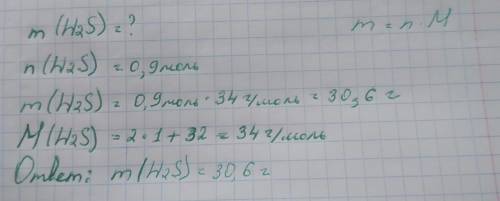 m (H2S) = ?
m = n · M
n (H2S) = 0,9 моль
m (H2S) = 0,9 моль · 34 г/моль = 30,6 г
M (H2S) = 2 · 1 + 32 = 34 г/моль
Ответ: m (H2S) = 30,6 г